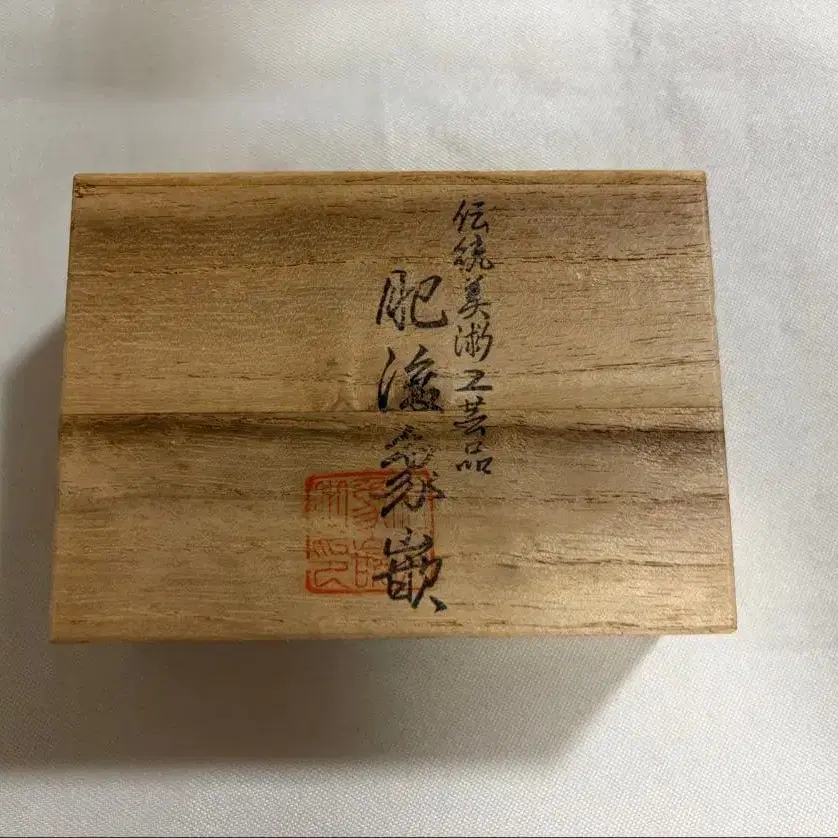 伝統美術工芸品
肥後象嵌